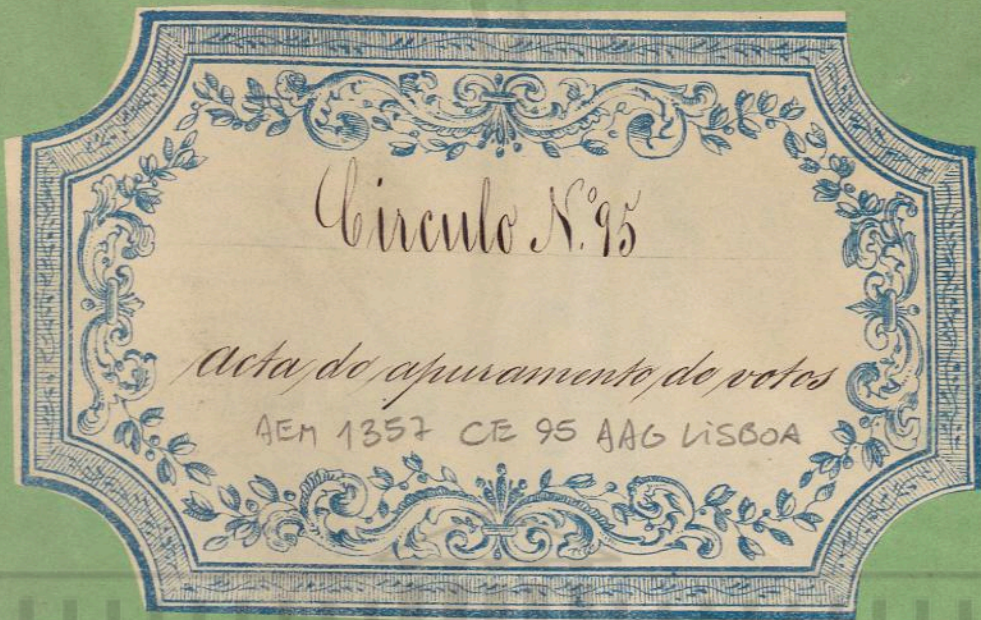 Circulo N.º 95
Acta do apuramento de votos
AEM 1357 CE 95 AAG LISBOA